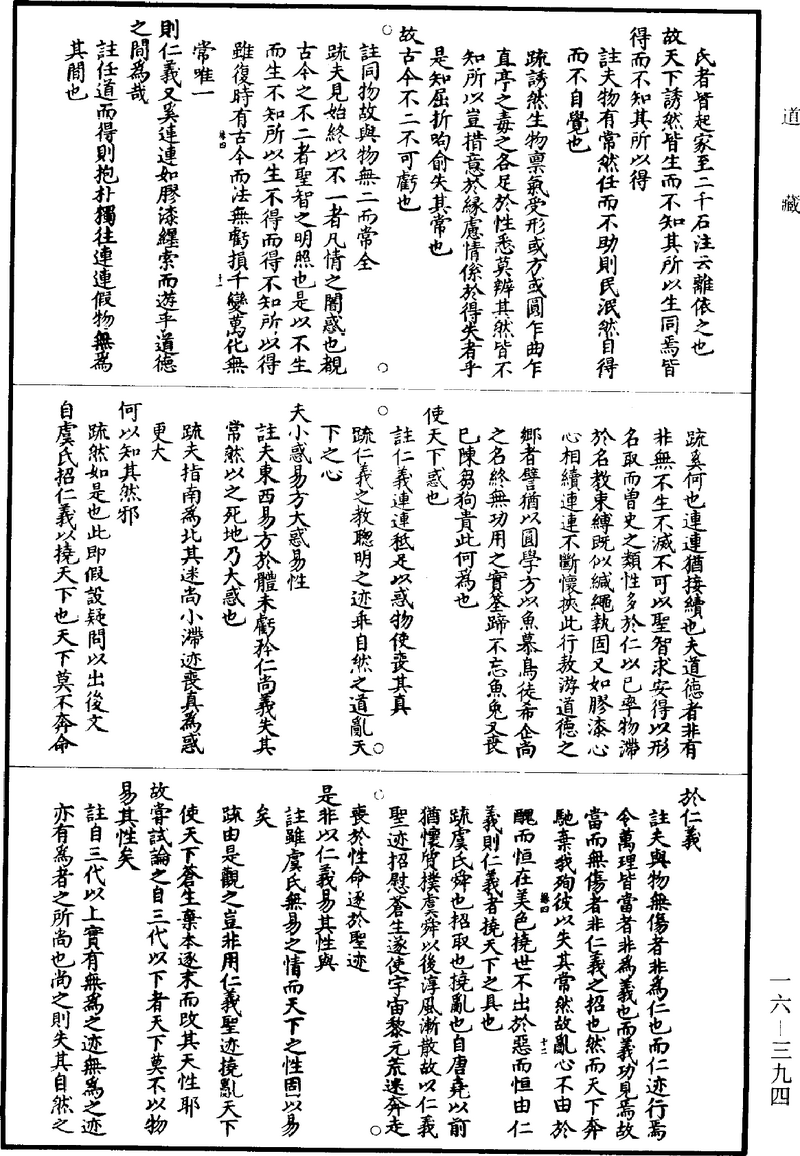 道藏
氏者皆起家至二千石注云離依之也
故天下誘然皆生而不知其所以生同焉皆
得而不知其所以得
註夫物有常然任而不助則民泯然自得
而不自覺也
疏誘然生物禀氣受形或方或圓乍曲乍
直亭之毒之各足於性悉莫辨其然皆不
知所以豈措意於緣慮情係於得失者乎
是知屈折呴俞失其常也
故古今不二不可虧也
註同物故與物無二而常全
疏夫見始終以不一者凡情之闇惑也覩
古今之不二者聖智之明照也是以不生
而生不知所以生不得而得不知所以得
雖復時有古今而法無虧損千變萬化無
常唯一
則仁義又奚連連如膠漆纆索而遊乎道德
之間為哉
註任道而得則抱朴獨往連連假物無為
其間也
疏奚何也連連猶接續也夫道德者非有
非無不生不滅不可以聖智求安得以形
名取而曾史之類性多於仁以已率物滯
於名教束縛既似緘繩執固又如膠漆心
心相續連連不斷懷挾此行敖游道德之
鄉者譬猶以圓學方以魚慕鳥徒希企尚
之名終無功用之實筌蹄不忘魚兔又喪
已陳芻狗貴此何為也
使天下惑也
註仁義連連秪足以惑物使喪其真
疏仁義之教聰明之迹乖自然之道亂天
下之心
夫小惑易方大惑易性
註夫東西易方於體未虧矜仁尚義失其
常然以之死地乃大惑也
疏夫指南為北其迷尚小滯迹喪真為惑
更大
何以知其然邪
疏然如是也此即假設疑問以出後文
自虞氏招仁義以撓天下也天下莫不奔命
於仁義
註夫與物無傷者非為仁也而仁迹行焉
令萬理皆當者非為義也而義功見焉故
當而無傷者非仁義之招也然而天下奔
馳棄我殉彼以失其常然故亂心不由於
醜而恒在美色撓世不出於惡而恒由仁
義則仁義者撓天下之具也
疏虞氏舜也招取也撓亂也自唐堯以前
猶懷質樸虞舜以後淳風漸散故以仁義
聖迹招慰蒼生遂使宇宙黎元荒迷奔走
喪於性命逐於聖迹
是非以仁義易其性與
註雖虞氏無易之情而天下之性固以易
矣
疏由是觀之豈非用仁義聖迹撓亂天下
使天下蒼生棄本逐末而改其天性耶
故嘗試論之自三代以下者天下莫不以物
易其性矣
註自三代以上實有無為之迹無為之迹
亦有為者之所尚也尚之則失其自然之
一六—三九四